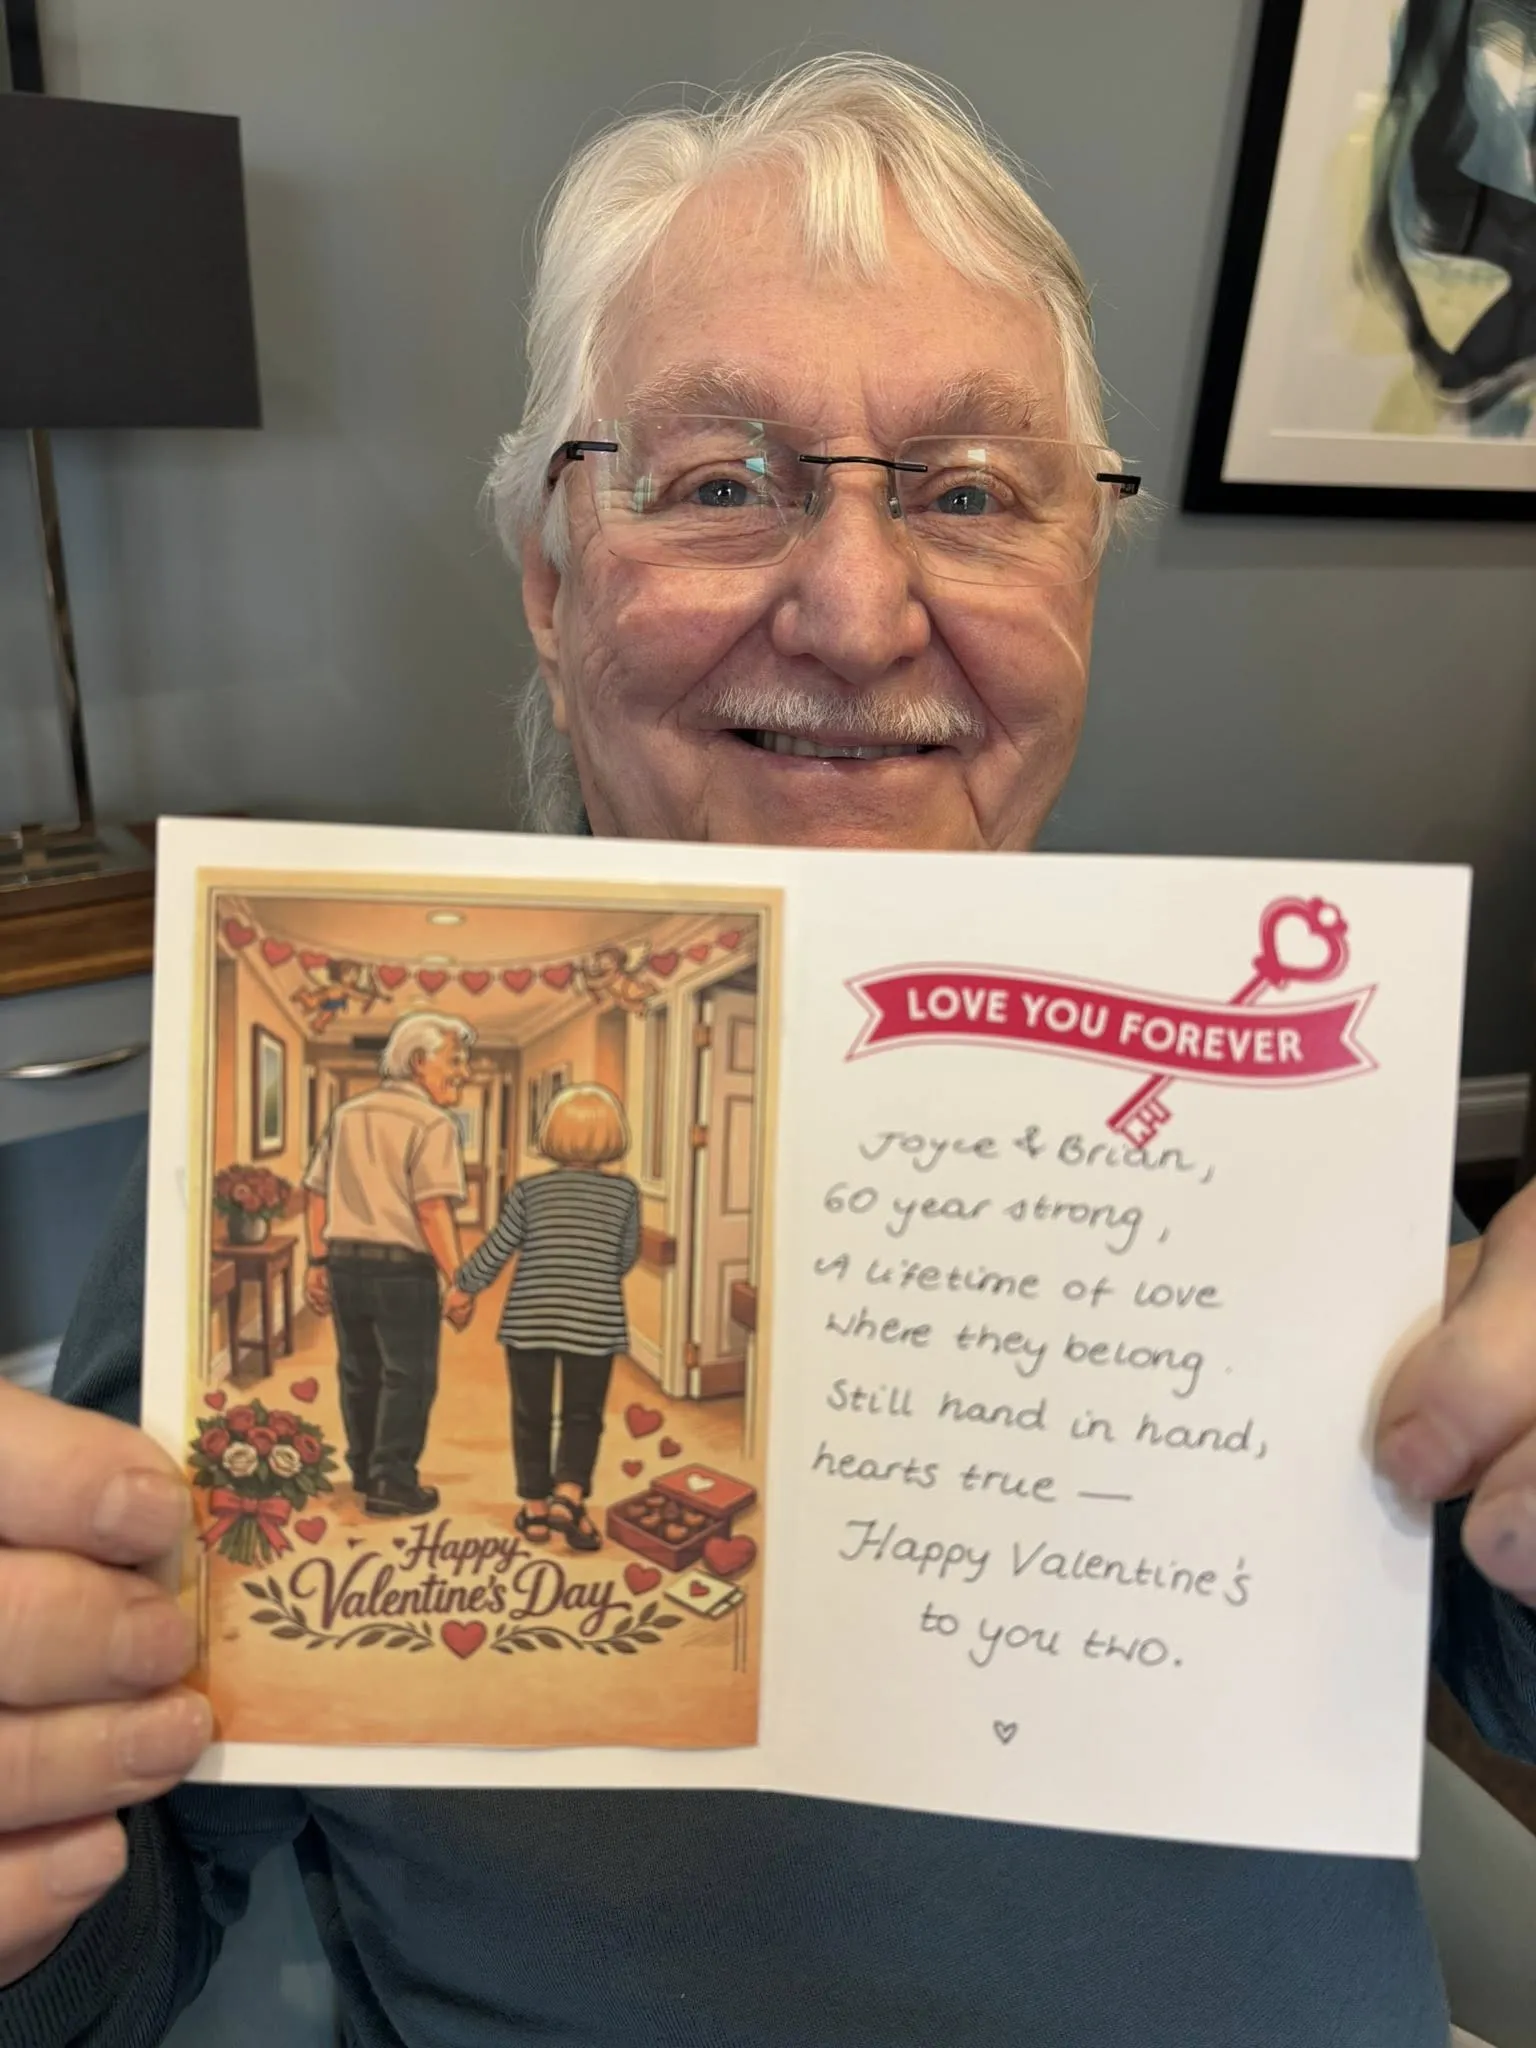 Happy
Valentine's Day
LOVE YOU FOREVER
Joyce & Brian,
60 year strong,
A lifetime of love
where they belong.
Still hand in hand,
hearts true —
Happy Valentine's
to you two.